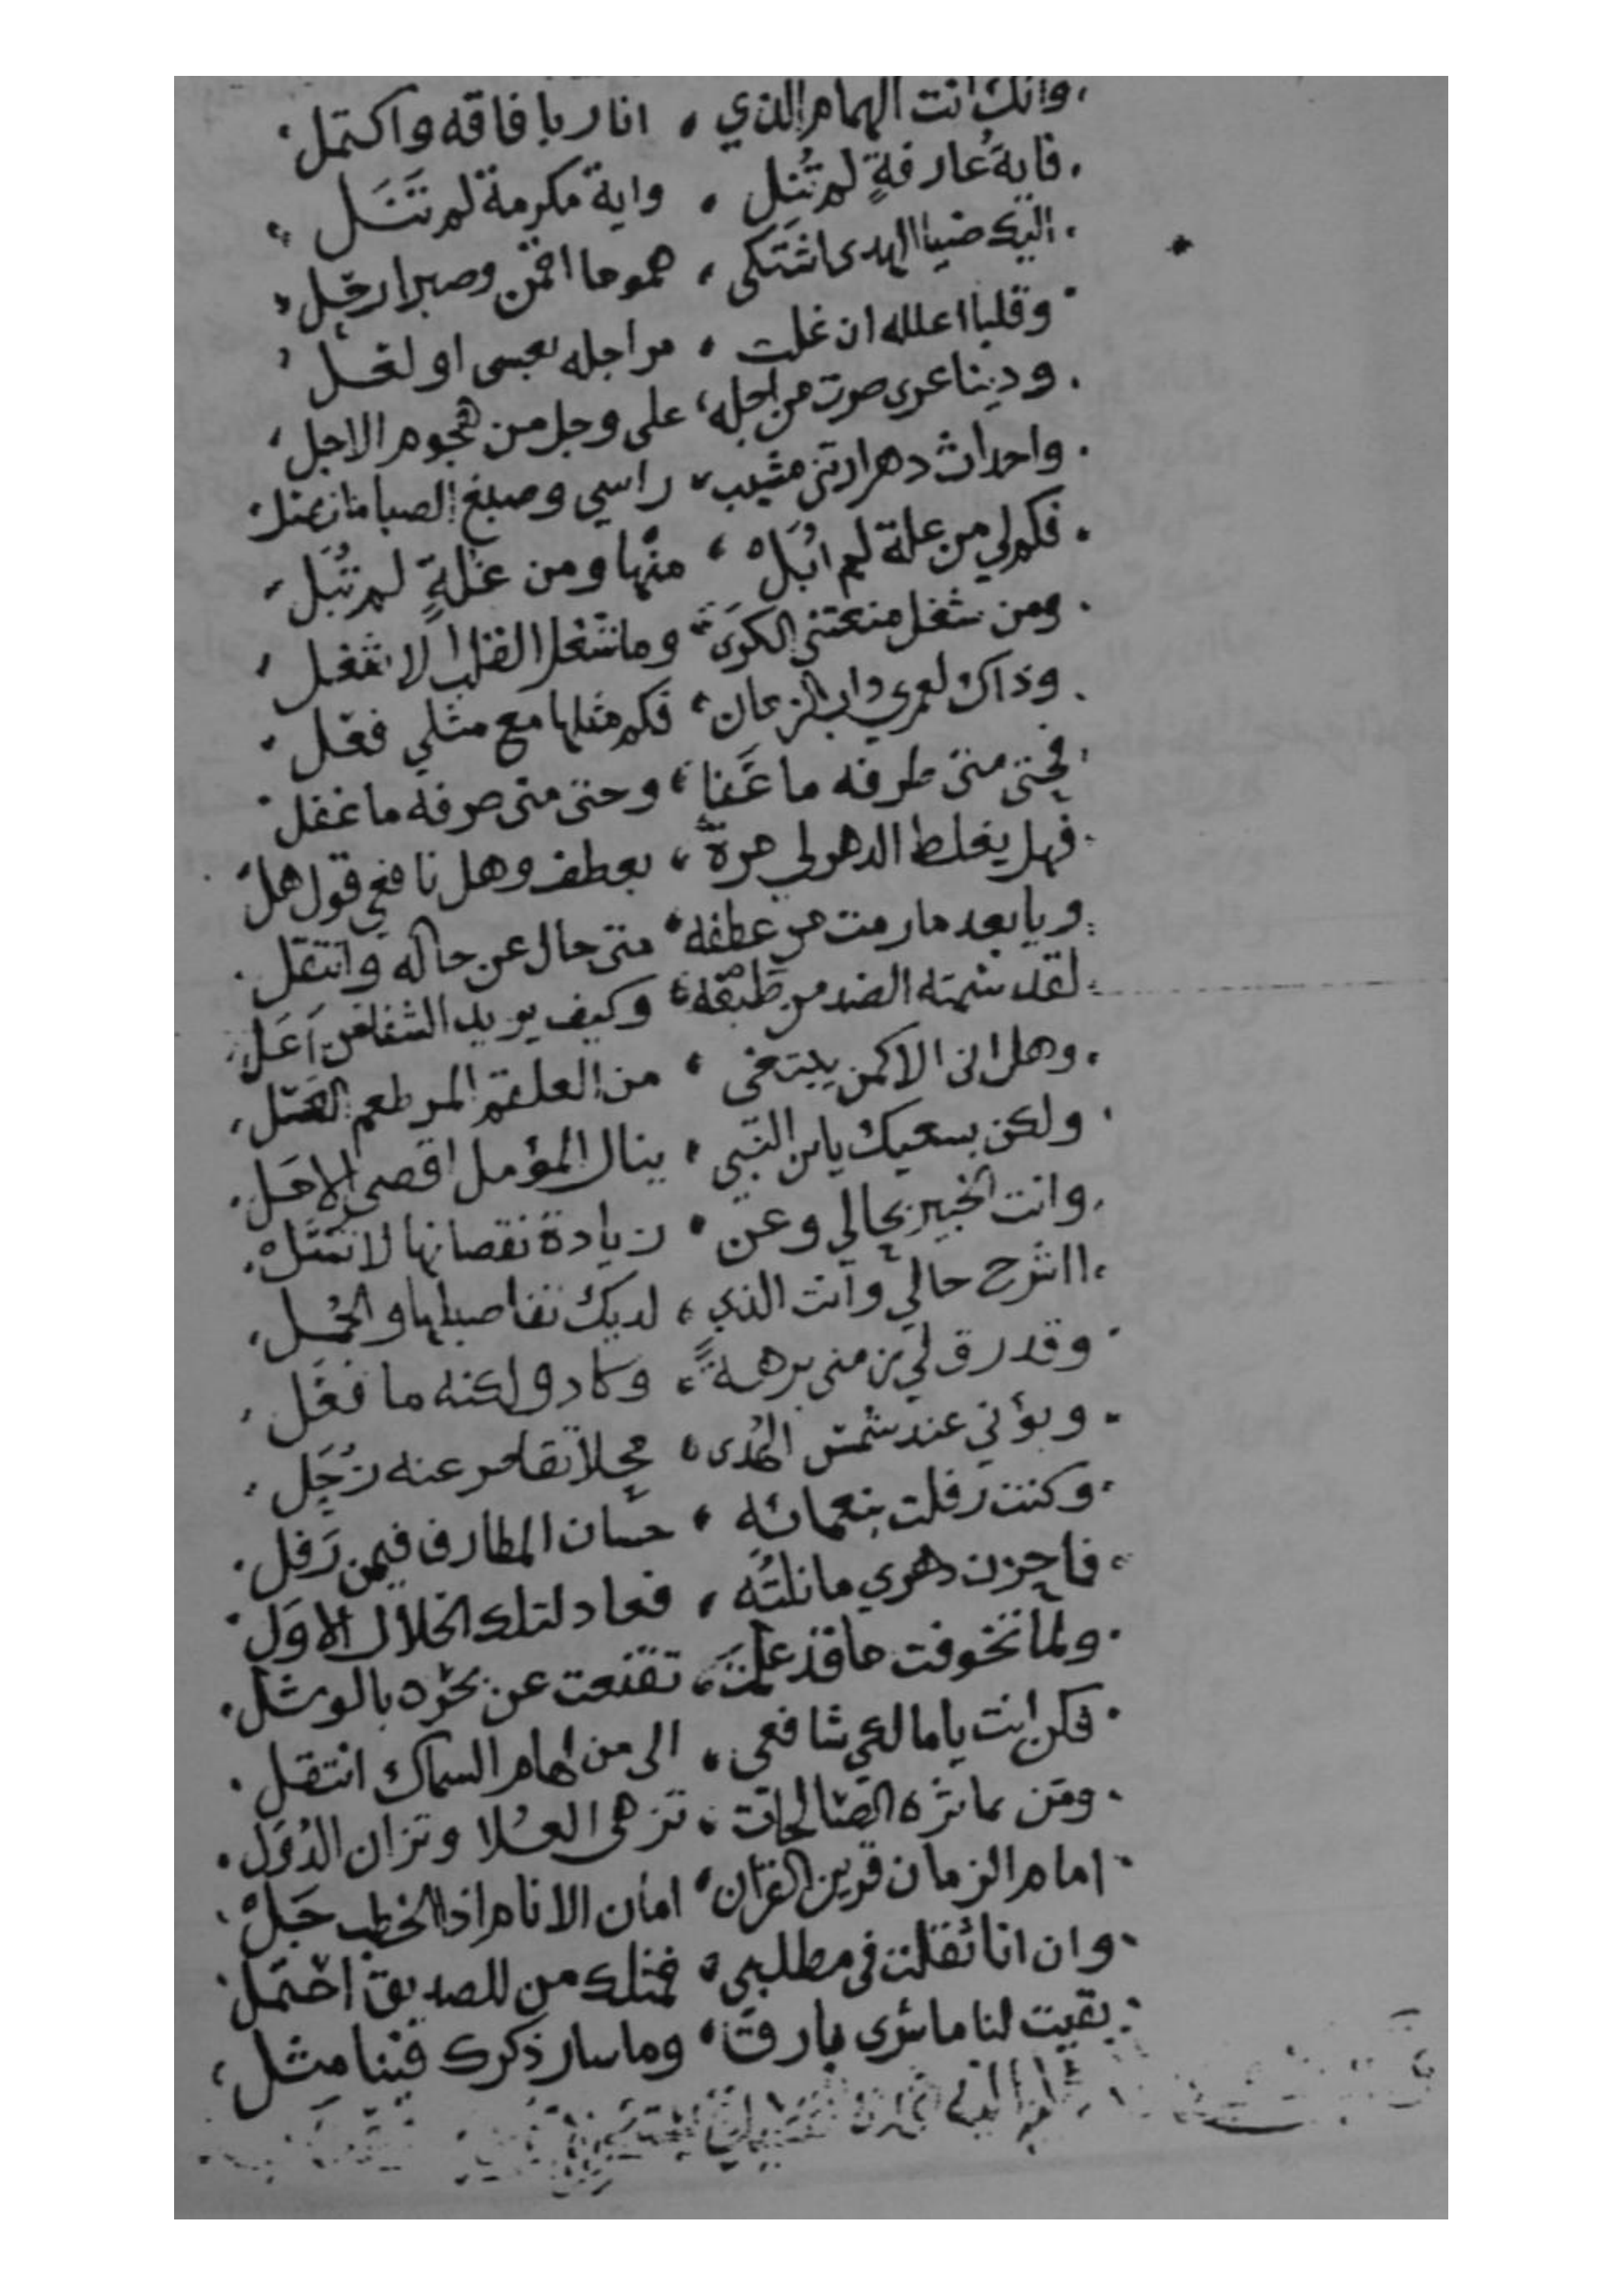 وانك انت الهمام الذي ، انار بافاقه واكتمل
فاية عارفةٍ لم تُنِل ، واية مكرمة لم تَنَل
اليك ضيا الهدى اشتكى ، هموما اقمن وصبرا رحل
وقلبا اعلله ان غلت ، مراجله بعسى او لعل
ودينا عرى صرت من اجله ، على وجل من هجوم الاجل
واحداث دهر ارتني مشيب ، راسي وصبغ الصبا ما نصل
فكم لي من علة لم ابُلْ ، منها ومن غلةٍ لم تُبَل
ومن شغل منعتني الكرى ، وما شغل القلب الا شغل
وذاك لعمري داب الزمان ، فكم مثلها مع مثلي فعل
فحتى متى طرفه ما غفا ، وحتى متى صرفه ما غفل
فهل يغلط الدهر لي مرة ، بعطف وهل نافعي قول هل
ويا بعد ما رمت من عطفه ، متى حال عن حاله وانتقل
لقد شمته الضد من طبعه ، وكيف يريد الشفا من اعل
وهل انا الا كمن يبتغي ، من العلقم المر طعم العسل
ولكن بسعيك يا ابن النبي ، ينال المؤمل اقصى الامل
وانت الخبير بحالي وعن ، زيادة نقصانها لا تسل
ااشرح حالي وانت الذي ، لديك تفاصيلها والجمل
وقد رق لي زمني برهة ، وكاد ولكنه ما فعل
وبؤني عند شمس الهدى ، محلا تقاصر عنه زُحَل
وكنت رفلت بنعمائه ، حسان المطارف فيمن رفل
فاحزن دهري ما نلته ، فعاد لتلك الخلال الاول
ولما تخوفت ما قد علمت ، تقنعت عن بحره بالوشل
فكن انت يا مالكي شافعي ، الى من لهام السماك انتعل
ومن بماثره الصالحات ، تزهى العلا وتزان الدُوَل
امام الزمان قرين القران ، امان الانام اذا الخطب جَلْ
وان انا ثقلت في مطلبي ، فمثلك من للصديق احتمل
بقيت لنا ما سرى بارق ، وما سار ذكرك فينا مثل